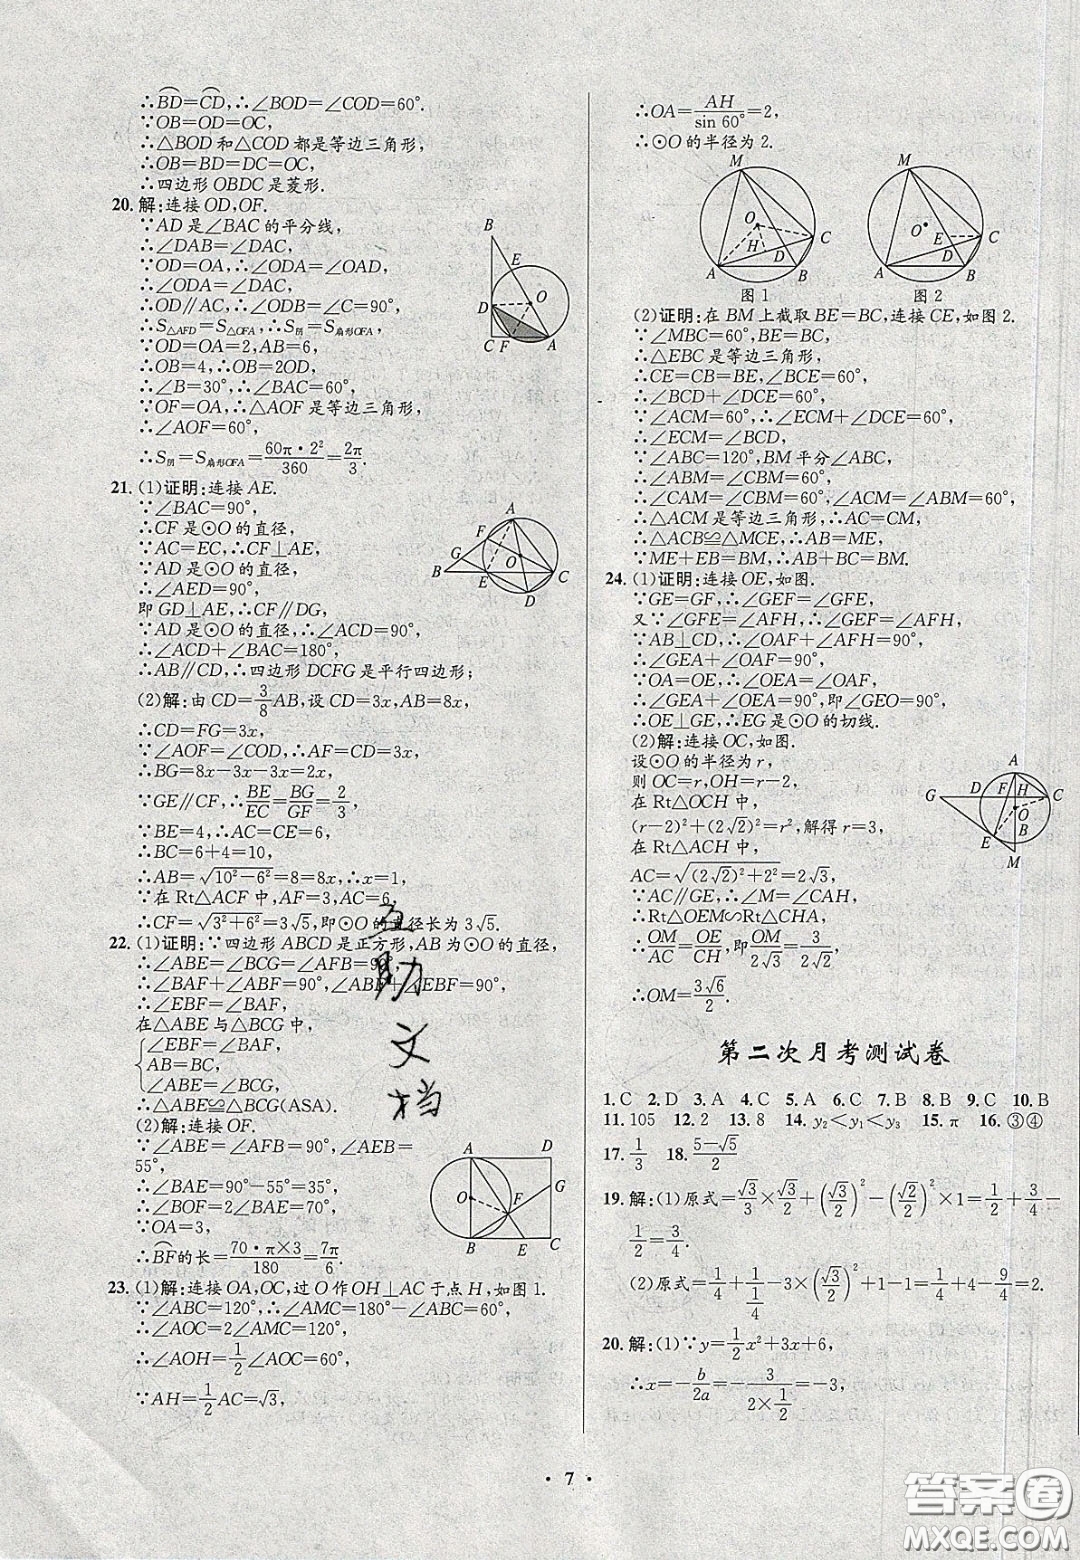 ∴BD=CD,∴∠BOD=∠COD=60°.
∵OB=OD=OC,
∴△BOD和△COD都是等边三角形,
∴OB=BD=DC=OC,
∴四边形OBDC是菱形.
20.解:连接OD,OF.
∵AD是∠BAC的平分线,
∴∠DAB=∠DAC,
∵OD=OA,∴∠ODA=∠OAD,
∴∠ODA=∠DAC,
∴OD∥AC,∴∠ODB=∠C=90°,
∴S△AFD=S△OFA,∴S阴=S扇形OFA,
∵OD=OA=2,AB=6,
∴OB=4,∴OB=2OD,
∴∠B=30°,∴∠BAC=60°,
∵OF=OA,∴△AOF是等边三角形,
∴∠AOF=60°,
∴S阴=S扇形OFA=60π·2²/360=2π/3.
B
E
D
O
C F A
21.(1)证明:连接AE.
∵∠BAC=90°,
∴CF是⊙O的直径,
∵AC=EC,∴CF⊥AE,
∵AD是⊙O的直径,
∴∠AED=90°,
即GD⊥AE,∴CF∥DG,
∵AD是⊙O的直径,∴∠ACD=90°,
∴∠ACD+∠BAC=180°,
∴AB∥CD,∴四边形DCFG是平行四边形;
(2)解:由CD=3/8AB,设CD=3x,AB=8x,
∴CD=FG=3x,
∵∠AOF=∠COD,∴AF=CD=3x,
∴BG=8x-3x-3x=2x,
∵GE∥CF,∴BE/EC=BG/GF=2/3,
∵BE=4,∴AC=CE=6,
∴BC=6+4=10,
∴AB=√(10²-6²)=8=8x,∴x=1,
∵在Rt△ACF中,AF=3,AC=6,
∴CF=√(3²+6²)=3√5,即⊙O的直径长为3√5.
A
F
G
O
B E C
D
22.(1)证明:∵四边形ABCD是正方形,AB为⊙O的直径,
∴∠ABE=∠BCG=∠AFB=90°,
∴∠BAF+∠ABF=90°,∠ABF+∠EBF=90°,
∴∠EBF=∠BAF,
在△ABE与△BCG中,
∠EBF=∠BAF,
AB=BC,
∠ABE=∠BCG,
∴△ABE≌△BCG(ASA).
(2)解:连接OF.
∵∠ABE=∠AFB=90°,∠AEB=
55°,
∴∠BAE=90°-55°=35°,
∴∠BOF=2∠BAE=70°,
∵OA=3,
∴BF的长=70·π×3/180=7π/6.
A D
G
O F
B E C
互助文档
23.(1)解:连接OA,OC,过O作OH⊥AC于点H,如图1.
∵∠ABC=120°,∴∠AMC=180°-∠ABC=60°,
∴∠AOC=2∠AMC=120°,
∴∠AOH=1/2∠AOC=60°,
∵AH=1/2AC=√3,
∴OA=AH/sin 60°=2,
∴⊙O的半径为2.
M
O
H
A D B C
图1
M
O
E
A D B C
图2
(2)证明:在BM上截取BE=BC,连接CE,如图2.
∵∠MBC=60°,BE=BC,
∴△EBC是等边三角形,
∴CE=CB=BE,∠BCE=60°,
∴∠BCD+∠DCE=60°,
∵∠ACM=60°,∴∠ECM+∠DCE=60°,
∴∠ECM=∠BCD,
∵∠ABC=120°,BM平分∠ABC,
∴∠ABM=∠CBM=60°,
∴∠CAM=∠CBM=60°,∠ACM=∠ABM=60°,
∴△ACM是等边三角形,∴AC=CM,
∴△ACB≌△MCE,∴AB=ME,
∵ME+EB=BM,∴AB+BC=BM.
24.(1)证明:连接OE,如图.
∵GE=GF,∴∠GEF=∠GFE,
又∵∠GFE=∠AFH,∴∠GEF=∠AFH,
∵AB⊥CD,∴∠OAF+∠AFH=90°,
∴∠GEA+∠OAF=90°,
∵OA=OE,∴∠OEA=∠OAF,
∴∠GEA+∠OEA=90°,即∠GEO=90°,
∴OE⊥GE,∴EG是⊙O的切线.
(2)解:连接OC,如图.
设⊙O的半径为r,
则OC=r,OH=r-2,
在Rt△OCH中,
(r-2)²+(2√2)²=r²,解得r=3,
在Rt△ACH中,
AC=√((2√2)²+2²)=2√3,
∵AC∥GE,∴∠M=∠CAH,
∴Rt△OEM∽Rt△CHA,
∴OM/AC=OE/CH,即OM/2√3=3/2√2,
∴OM=3√6/2.
A
G D F H C
O
E B
M
第二次月考测试卷
1.C 2.D 3.A 4.C 5.A 6.C 7.B 8.B 9.C 10.B
11.105 12.2 13.8 14.y₂<y₁<y₃ 15.π 16.③④
17.1/3 18.(5-√5)/2
19.解:(1)原式=√3/3×√3/2+(√3/2)²-(√2/2)²×1=1/2+3/4-
1/2=3/4.
(2)原式=1/4+1/(1/4)-3×(√3/2)²+1-1=1/4+4-9/4=2.
20.解:(1)∵y=1/2x²+3x+6,
∴x=-b/2a=-3/(2×1/2)=-3,
·7·
答案圈
MXQE.COM